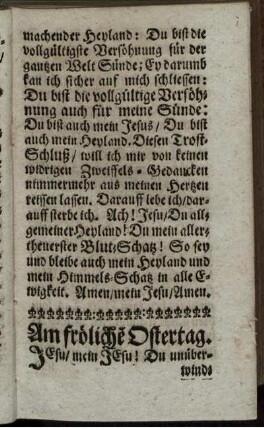 machender Heyland: Du bist die
vollgültigste Versöhnung für der
gantzen Welt Sünde; Ey darumb
kan ich sicher auf mich schliessen:
Du bist die vollgültige Versöh-
nung auch für meine Sünde:
Du bist auch mein Jesus/ Du bist
auch mein Heyland. Diesen Trost-
Schluß/ will ich mir von keinen
widrigen Zweiffels-Gedancken
nimmermehr aus meinen Hertzen
reissen lassen. Darauff lebe ich/dar-
auff sterbe ich. Ach! Jesu/Du all-
gemeiner Heyland! Du mein aller-
theuerster Blut-Schatz! So sey
und bleibe auch mein Heyland und
mein Himmels-Schatz in alle E-
wigkeit. Amen/mein Jesu/Amen.
Am fröliche͂ Ostertag.
JEsu/ mein JEsu! Du unüber-
winds